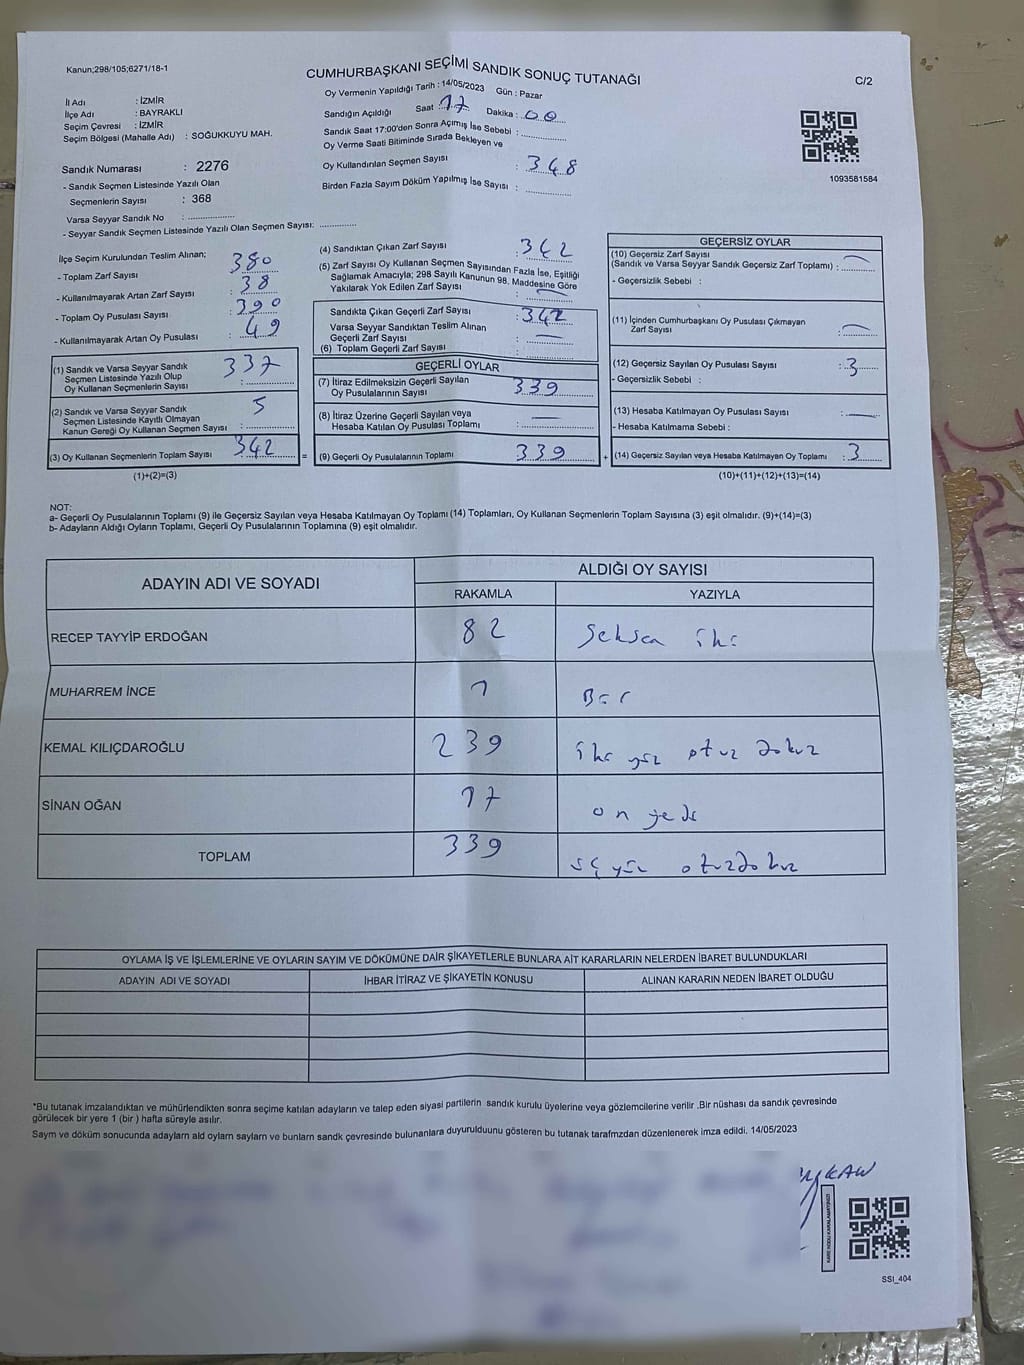 Kanun;298/105;6271/18-1
CUMHURBAŞKANI SEÇİMİ SANDIK SONUÇ TUTANAĞI
C/2
Oy Vermenin Yapıldığı Tarih : 14/05/2023 Gün : Pazar
İl Adı : İZMİR
İlçe Adı : BAYRAKLI
Seçim Çevresi : İZMİR
Seçim Bölgesi (Mahalle Adı) : SOĞUKKUYU MAH.
Sandığın Açıldığı Saat : 17 Dakika : 00
Sandık Saat 17:00'den Sonra Açımış İse Sebebi :
Oy Verme Saati Bitiminde Sırada Bekleyen ve
Oy Kullandırılan Seçmen Sayısı : 348
Birden Fazla Sayım Döküm Yapılmış İse Sayısı :
1093581584
Sandık Numarası : 2276
- Sandık Seçmen Listesinde Yazılı Olan
Seçmenlerin Sayısı : 368
Varsa Seyyar Sandık No :
- Seyyar Sandık Seçmen Listesinde Yazılı Olan Seçmen Sayısı:
İlçe Seçim Kurulundan Teslim Alınan;
- Toplam Zarf Sayısı : 380
- Kullanılmayarak Artan Zarf Sayısı : 38
- Toplam Oy Pusulası Sayısı : 390
- Kullanılmayarak Artan Oy Pusulası : 49
(1) Sandık ve Varsa Seyyar Sandık
Seçmen Listesinde Yazılı Olup
Oy Kullanan Seçmenlerin Sayısı : 337
(2) Sandık ve Varsa Seyyar Sandık
Seçmen Listesinde Kayıtlı Olmayan
Kanun Gereği Oy Kullanan Seçmen Sayısı : 5
(3) Oy Kullanan Seçmenlerin Toplam Sayısı : 342
(1)+(2)=(3)
(4) Sandıktan Çıkan Zarf Sayısı : 342
(5) Zarf Sayısı Oy Kullanan Seçmen Sayısından Fazla İse, Eşitliği
Sağlamak Amacıyla; 298 Sayılı Kanunun 98. Maddesine Göre
Yakılarak Yok Edilen Zarf Sayısı :
Sandıkta Çıkan Geçerli Zarf Sayısı : 342
Varsa Seyyar Sandıktan Teslim Alınan
Geçerli Zarf Sayısı :
(6) Toplam Geçerli Zarf Sayısı :
GEÇERLİ OYLAR
(7) İtiraz Edilmeksizin Geçerli Sayılan
Oy Pusulalarının Sayısı : 339
(8) İtiraz Üzerine Geçerli Sayılan veya
Hesaba Katılan Oy Pusulası Toplamı :
= (9) Geçerli Oy Pusulalarının Toplamı : 339
GEÇERSİZ OYLAR
(10) Geçersiz Zarf Sayısı
(Sandık ve Varsa Seyyar Sandık Geçersiz Zarf Toplamı) :
- Geçersizlik Sebebi :
(11) İçinden Cumhurbaşkanı Oy Pusulası Çıkmayan
Zarf Sayısı :
(12) Geçersiz Sayılan Oy Pusulası Sayısı : 3
- Geçersizlik Sebebi :
(13) Hesaba Katılmayan Oy Pusulası Sayısı :
- Hesaba Katılmama Sebebi :
+ (14) Geçersiz Sayılan veya Hesaba Katılmayan Oy Toplamı : 3
(10)+(11)+(12)+(13)=(14)
NOT:
a- Geçerli Oy Pusulalarının Toplamı (9) ile Geçersiz Sayılan veya Hesaba Katılmayan Oy Toplamı (14) Toplamları, Oy Kullanan Seçmenlerin Toplam Sayısına (3) eşit olmalıdır. (9)+(14)=(3)
b- Adayların Aldığı Oyların Toplamı, Geçerli Oy Pusulalarının Toplamına (9) eşit olmalıdır.
ADAYIN ADI VE SOYADI ALDIĞI OY SAYISI
RAKAMLA YAZIYLA
RECEP TAYYİP ERDOĞAN 82 Seksen iki
MUHARREM İNCE 1 Bir
KEMAL KILIÇDAROĞLU 239 iki yüz otuz dokuz
SİNAN OĞAN 17 on yedi
TOPLAM 339 üç yüz otuzdokuz
OYLAMA İŞ VE İŞLEMLERİNE VE OYLARIN SAYIM VE DÖKÜMÜNE DAİR ŞİKAYETLERLE BUNLARA AİT KARARLARIN NELERDEN İBARET BULUNDUKLARI
ADAYIN ADI VE SOYADI İHBAR İTİRAZ VE ŞİKAYETİN KONUSU ALINAN KARARIN NEDEN İBARET OLDUĞU
*Bu tutanak imzalandıktan ve mühürlendikten sonra seçime katılan adayların ve talep eden siyasi partilerin sandık kurulu üyelerine veya gözlemcilerine verilir .Bir nüshası da sandık çevresinde
görülecek bir yere 1 (bir ) hafta süreyle asılır.
Saym ve döküm sonucunda adayların ald oylarn saylarn ve bunlarn sandk çevresinde bulunanlara duyurulduunu gösteren bu tutanak tarafmzdan düzenlenerek imza edildi. 14/05/2023
SSI_404